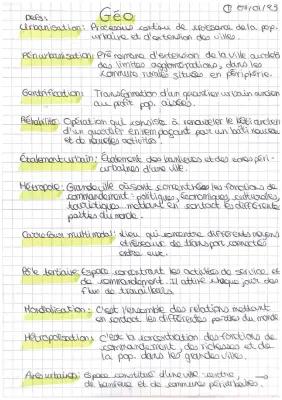 Defs:
Géo
Urbanisation: Processus continu de croissance de la pop.
urbaine et d'extension des villes.
Périurbanisation: Phénomène d'extension de la ville au delà
des limites agglomérations, dans les
commune rurales situées en périphérie.
Gentrification: Transformation d'un quartier urbain ancien
au profit pop. aisées.
Réhabilité: Opération qui consiste à renouveler le bâti ancien
d'un quartier en remplaçant par un bâti nouveau
et de nouvelles activités.
Étalement urbain: Étalement des banlieues et des zones péri-
urbaines d'une ville.
Métropole: Grande ville où sont concentrées les fonctions de
commandement: politiques, économiques, culturelles,
touristiques mettant en contact les différentes
parties du monde.
Carrefour multimodal: Lieu qui concentre différents moyens
et réseaux de transport connectés
entre eux.
Pôle tertiaire: Espace concentrant les activités de service et
de commandement. Il attire chaque jour des
flux de travailleurs.
Mondialisation: C'est l'ensemble des relations mettant
en contact les différentes parties du monde
Métropolisation: c'est la concentration des fonctions de
commandement, des richesses et de
la pop. dans les grandes villes.
Aire urbaine: espace constitué d'une ville centre,
de banlieue et de communes périurbaines. →